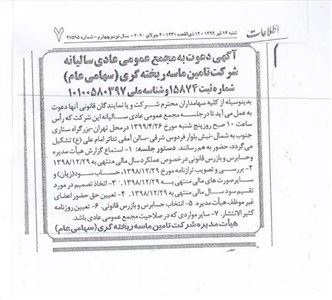 اطلاعات
شنبه ۱۴ تیر ۱۳۹۹ - ۱۲ ذی‌القعده ۱۴۴۱ - ۴ جولای ۲۰۲۰ - سال نود و چهارم - شماره ۲۷۵۹۵
۷
آگهی دعوت به مجمع عمومی عادی سالیانه
شرکت تامین ماسه ریخته گری (سهامی عام)
شماره ثبت ۱۵۸۷۴ و شناسه ملی ۱۰۱۰۰۵۸۰۳۹۷
بدینوسیله از کلیه سهامداران محترم شرکت و یا نمایندگان قانونی آنها دعوت
به عمل می آید تا در جلسه مجمع عمومی عادی سالیانه این شرکت که رأس
ساعت ۱۰ صبح روز پنج شنبه مورخ ۱۳۹۹/۴/۲۶ در محل تهران - بزرگراه ستاری
جنوب به شمال - نبش بلوار فردوس شرقی - سالن آمفی تئاتر امام علی (ع) تشکیل
می گردد، حضور به هم رسانند. دستور جلسه: ۱- استماع گزارش هیأت مدیره
و حسابرس و بازرس قانونی در خصوص عملکرد سال مالی منتهی به ۱۳۹۸/۱۲/۲۹
۲- بررسی و تصویب ترازنامه مورخ ۱۳۹۸/۱۲/۲۹، حساب سود (زیان) و
سایر صورت های مالی منتهی به ۱۳۹۸/۱۲/۲۹. ۳- اتخاذ تصمیم در مورد
تقسیم سود سال مالی منتهی به ۱۳۹۸/۱۲/۲۹. ۴- تعیین حق حضور اعضای
غیر موظف هیأت مدیره. ۵- انتخاب حسابرس و بازرس قانونی. ۶- تعیین روزنامه
کثیر الانتشار. ۷- سایر مواردی که در صلاحیت مجمع عمومی عادی باشد.
هیأت مدیره شرکت تامین ماسه ریخته گری (سهامی عام)